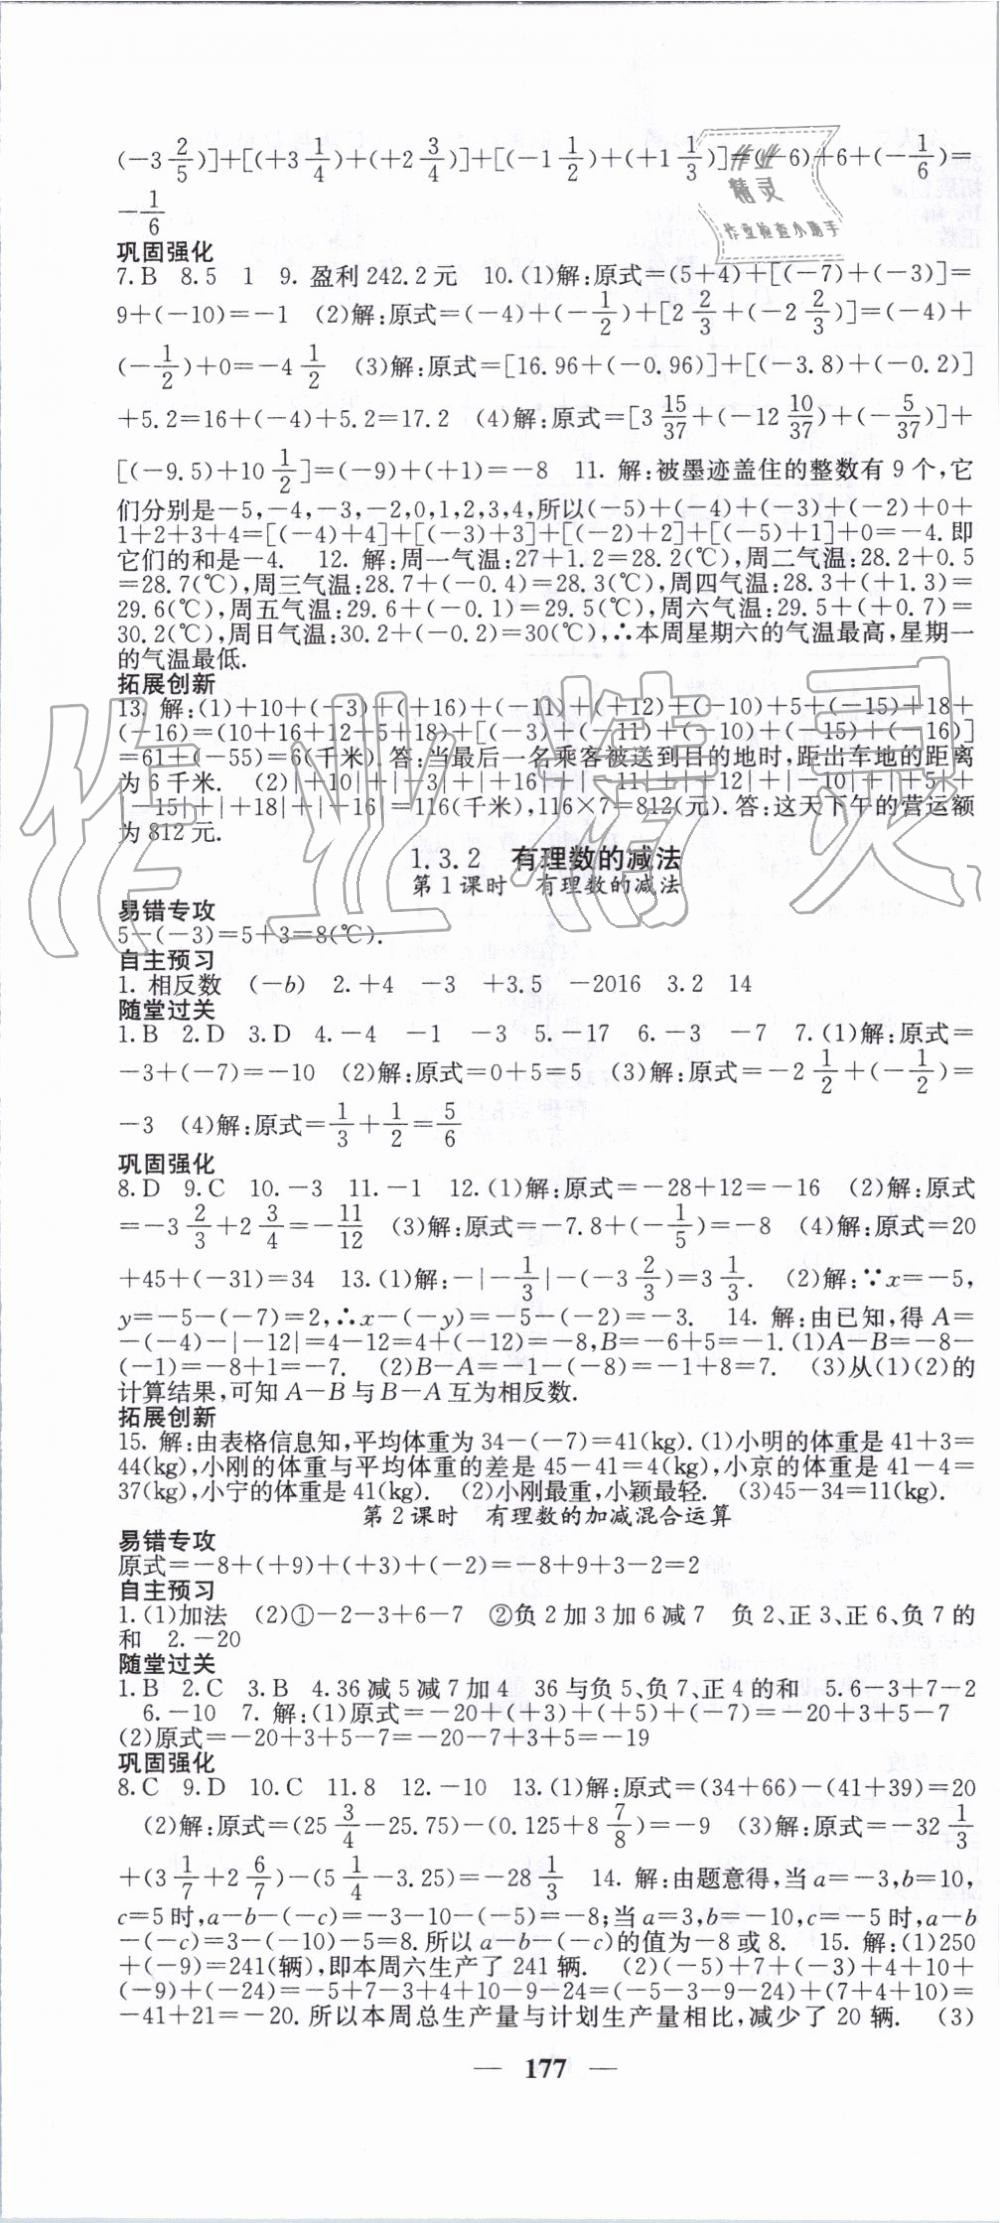 (-3 2/5)]+[(+3 1/4)+(+2 3/4)]+[(-1 1/2)+(+1 1/3)]=(-6)+6+(-1/6)=
-1/6
巩固强化
7.B 8.5 1 9. 盈利 242.2 元 10.(1)解:原式=(5+4)+[(-7)+(-3)]=
9+(-10)=-1 (2)解:原式=(-4)+(-1/2)+[2 2/3+(-2 2/3)]=(-4)+
(-1/2)+0=-4 1/2 (3)解:原式=[16.96+(-0.96)]+[(-3.8)+(-0.2)]
+5.2=16+(-4)+5.2=17.2 (4)解:原式=[3 15/37+(-12 10/37)+(-5/37)]+
[(-9.5)+10 1/2]=(-9)+(+1)=-8 11. 解:被墨迹盖住的整数有 9 个,它
们分别是-5,-4,-3,-2,0,1,2,3,4,所以(-5)+(-4)+(-3)+(-2)+0+
1+2+3+4=[(-4)+4]+[(-3)+3]+[(-2)+2]+[(-5)+1]+0=-4.即
它们的和是-4. 12. 解:周一气温:27+1.2=28.2(℃),周二气温:28.2+0.5
=28.7(℃),周三气温:28.7+(-0.4)=28.3(℃),周四气温:28.3+(+1.3)=
29.6(℃),周五气温:29.6+(-0.1)=29.5(℃),周六气温:29.5+(+0.7)=
30.2(℃),周日气温:30.2+(-0.2)=30(℃),∴本周星期六的气温最高,星期一
的气温最低.
拓展创新
13. 解:(1)+10+(-3)+(+16)+(-11)+(+12)+(-10)+5+(-15)+18+
(-16)=(10+16+12+5+18)+[(-3)+(-11)+(-10)+(-15)+(-16)]
=61+(-55)=6(千米).答:当最后一名乘客被送到目的地时,距出车地的距离
为 6 千米. (2)|+10|+|-3|+|+16|+|-11|+|+12|+|-10|+|+5|+
|-15|+|+18|+|-16|=116(千米),116×7=812(元).答:这天下午的营运额
为 812 元.
1.3.2 有理数的减法
第 1 课时 有理数的减法
易错专攻
5-(-3)=5+3=8(℃).
自主预习
1. 相反数 (-b) 2.+4 -3 +3.5 -2016 3.2 14
随堂过关
1.B 2.D 3.D 4.-4 -1 -3 5.-17 6.-3 -7 7.(1)解:原式=
-3+(-7)=-10 (2)解:原式=0+5=5 (3)解:原式=-2 1/2+(-1/2)=
-3 (4)解:原式=1/3+1/2=5/6
巩固强化
8.D 9.C 10.-3 11.-1 12.(1)解:原式=-28+12=-16 (2)解:原式
=-3 2/3+2 3/4=-11/12 (3)解:原式=-7.8+(-1/5)=-8 (4)解:原式=20
+45+(-31)=34 13.(1)解:-|-1/3|-(-3 2/3)=3 1/3. (2)解:∵x=-5,
y=-5-(-7)=2,∴x-(-y)=-5-(-2)=-3. 14. 解:由已知,得 A=
-(-4)-|-12|=4-12=4+(-12)=-8,B=-6+5=-1.(1)A-B=-8-
(-1)=-8+1=-7. (2)B-A=-1-(-8)=-1+8=7. (3)从(1)(2)的
计算结果,可知 A-B 与 B-A 互为相反数.
拓展创新
15. 解:由表格信息知,平均体重为 34-(-7)=41(kg).(1)小明的体重是 41+3=
44(kg),小刚的体重与平均体重的差是 45-41=4(kg),小京的体重是 41-4=
37(kg),小宁的体重是 41(kg). (2)小刚最重,小颖最轻. (3)45-34=11(kg).
第 2 课时 有理数的加减混合运算
易错专攻
原式=-8+(+9)+(+3)+(-2)=-8+9+3-2=2
自主预习
1.(1)加法 (2)①-2-3+6-7 ②负 2 加 3 加 6 减 7 负 2、正 3、正 6、负 7 的
和 2.-20
随堂过关
1.B 2.C 3.B 4.36 减 5 减 7 加 4 36 与负 5、负 7、正 4 的和 5.6-3+7-2
6.-10 7. 解:(1)原式=-20+(+3)+(+5)+(-7)=-20+3+5-7
(2)原式=-20+3+5-7=-20-7+3+5=-19
巩固强化
8.C 9.D 10.C 11.8 12.-10 13.(1)解:原式=(34+66)-(41+39)=20
(2)解:原式=(25 3/4-25.75)-(0.125+8 7/8)=-9 (3)解:原式=-32 1/3
+(3 1/7+2 6/7)-(5 1/4-3.25)=-28 1/3 14. 解:由题意得,当 a=-3,b=10,
c=5 时,a-b-(-c)=-3-10-(-5)=-8;当 a=3,b=-10,c=-5 时,a-b
-(-c)=3-(-10)-5=8.所以 a-b-(-c)的值为-8 或 8. 15. 解:(1)250
+(-9)=241(辆),即本周六生产了 241 辆. (2)(-5)+7+(-3)+4+10+
(-9)+(-24)=-5+7-3+4+10-9-24=(-5-3-9-24)+(7+4+10)=
-41+21=-20.所以本周总生产量与计划生产量相比,减少了 20 辆. (3)
— 177 —
作业
精灵
作业检查小助手
作业精灵